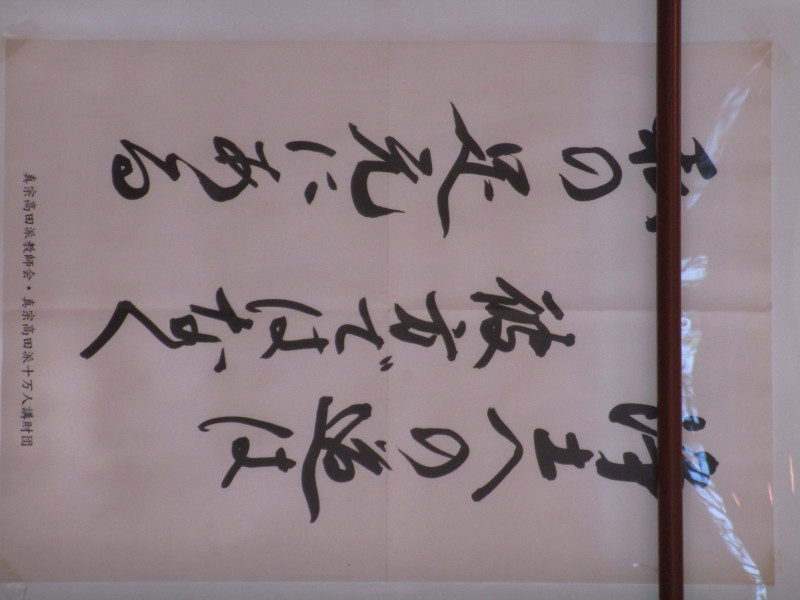 浄土への道は
彼方ではなく
私の足元にある
真宗高田派教師会・真宗高田派十万人講財団